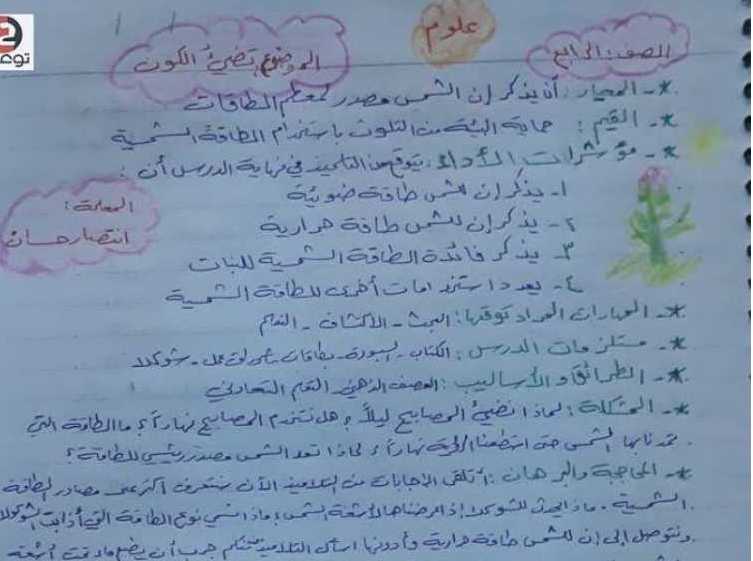 علوم
الصف: الرابع
الموضوع: تضيء الكون
*- المعيار: أن يذكر إن الشمس مصدر لمعظم الطاقات
*- القيم: حماية البيئة من التلوث باستخدام الطاقة الشمسية
*- مؤشرات الأداء: يتوقع من التلميذ في نهاية الدرس أن:
١- يذكر إن للشمس طاقة ضوئية
٢- يذكر إن للشمس طاقة حرارية
٣- يذكر فائدة الطاقة الشمسية للنبات
٤- يعدد استخدامات أخرى للطاقة الشمسية
المعلمة:
انتصار حسان
*- المهارات المراد توقعها: البحث - الاكتشاف - التعلم
*- مستلزمات الدرس: الكتاب - السبورة - بطاقات - عمل - شوكولا
*- الطرائق والأساليب: العصف الذهني التعلم التعاوني
*- المشكلة: لماذا نضيء المصابيح ليلاً؟ هل نستخدم المصابيح نهاراً؟ ما الطاقة التي
تمدنا بها الشمس حتى استطعنا الرؤية نهاراً؟ لماذا تعد الشمس مصدر رئيسي للطاقة؟
*- المحاججة والبرهان: أتلقى الإجابات من التلاميذ الآن سنتعرف أكثر على مصادر الطاقة
الشمسية. ماذا يحدث للشوكولا إذا عرضناها لأشعة الشمس؟ ماذا نسمي نوع الطاقة التي أذابت الشوكولا
ونتوصل إلى إن للشمس طاقة حرارية وأدونها أسأل التلاميذ منكم جرب أن يضع ماء تحت أشعة